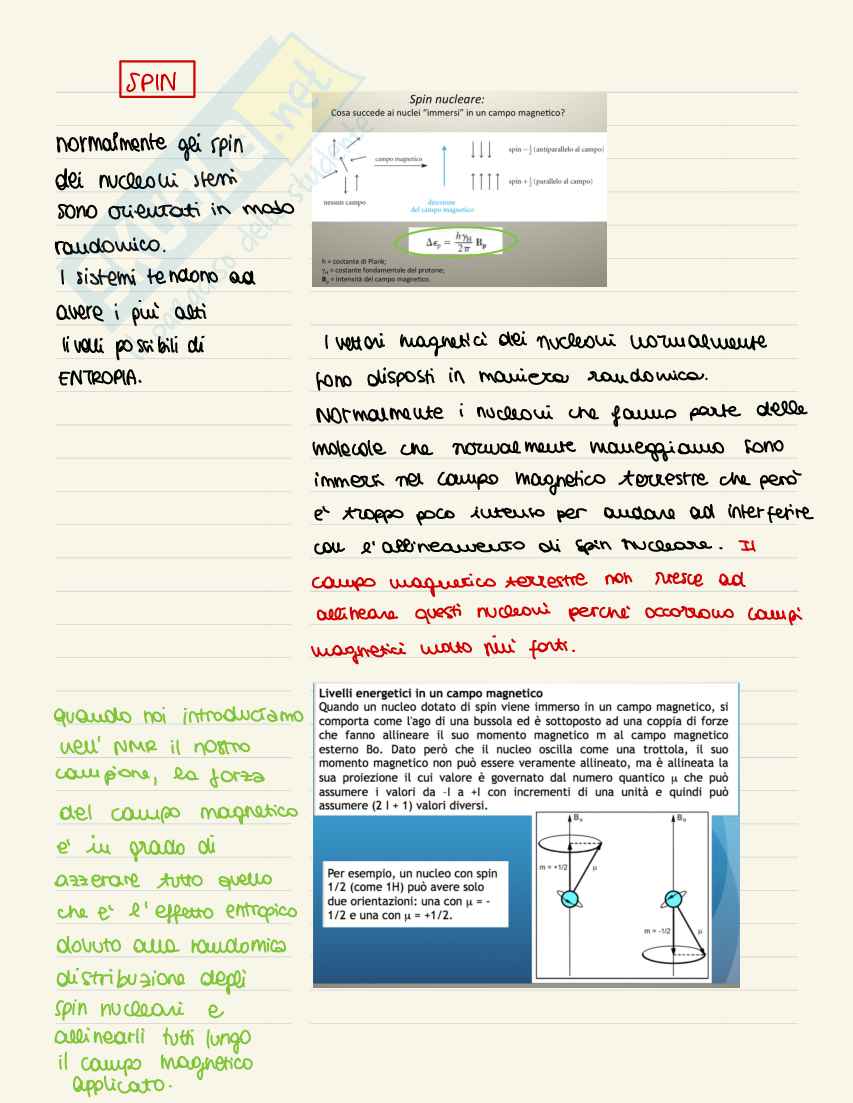 SPIN
normalmente gli spin
dei nucleoni stessi
sono orientati in modo
randomico.
I sistemi tendono ad
avere i più alti
livelli possibili di
ENTROPIA.
Spin nucleare:
Cosa succede ai nuclei "immersi" in un campo magnetico?
nessun campo
campo magnetico
direzione
del campo magnetico
spin − 1/2 (antiparallelo al campo)
spin + 1/2 (parallelo al campo)
Δεp = hγH/2π Bp
h = costante di Plank;
γH = costante fondamentale del protone;
Bp = intensità del campo magnetico.
I vettori magnetici dei nucleoni normalmente
sono disposti in maniera randomica.
Normalmente i nucleoni che fanno parte delle
molecole che normalmente maneggiamo sono
immersi nel campo magnetico terrestre che però
è troppo poco intenso per andare ad interferire
con l'allineamento di spin nucleare. Il
campo magnetico terrestre non riesce ad
allineare questi nucleoni perchè occorrono campi
magnetici molto più forti.
quando noi introduciamo
nell' NMR il nostro
campione, la forza
del campo magnetico
è in grado di
azzerare tutto quello
che è l'effetto entropico
dovuto alla randomica
distribuzione degli
spin nucleari e
allinearli tutti lungo
il campo magnetico
applicato.
Livelli energetici in un campo magnetico
Quando un nucleo dotato di spin viene immerso in un campo magnetico, si
comporta come l'ago di una bussola ed è sottoposto ad una coppia di forze
che fanno allineare il suo momento magnetico m al campo magnetico
esterno Bo. Dato però che il nucleo oscilla come una trottola, il suo
momento magnetico non può essere veramente allineato, ma è allineata la
sua proiezione il cui valore è governato dal numero quantico μ che può
assumere i valori da -I a +I con incrementi di una unità e quindi può
assumere (2 I + 1) valori diversi.
Per esempio, un nucleo con spin
1/2 (come 1H) può avere solo
due orientazioni: una con μ = -
1/2 e una con μ = +1/2.
B₀
m = +1/2
μ
B₀
m = -1/2
μ
.net